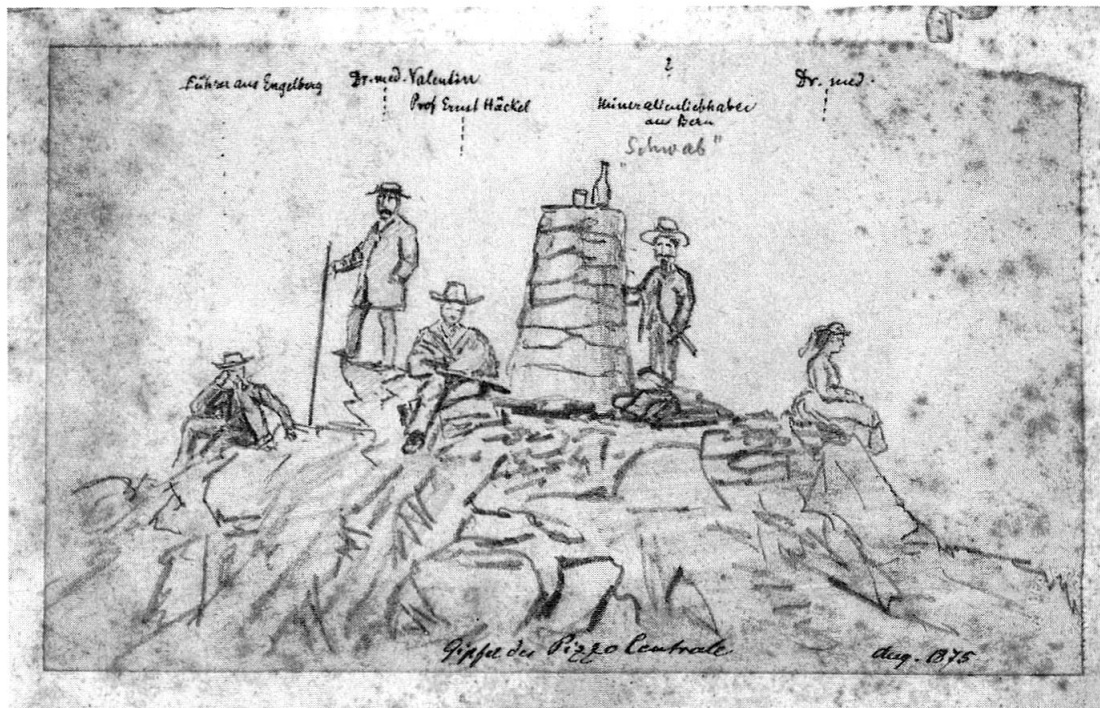 Führer aus Engelberg
Dr. med. Valentin
Prof Ernst Häckel
?
Mineralienliebhaber
aus Bern
"Schwab"
Dr. med.
Gipfel des Pizzo Centrale
Aug. 1875